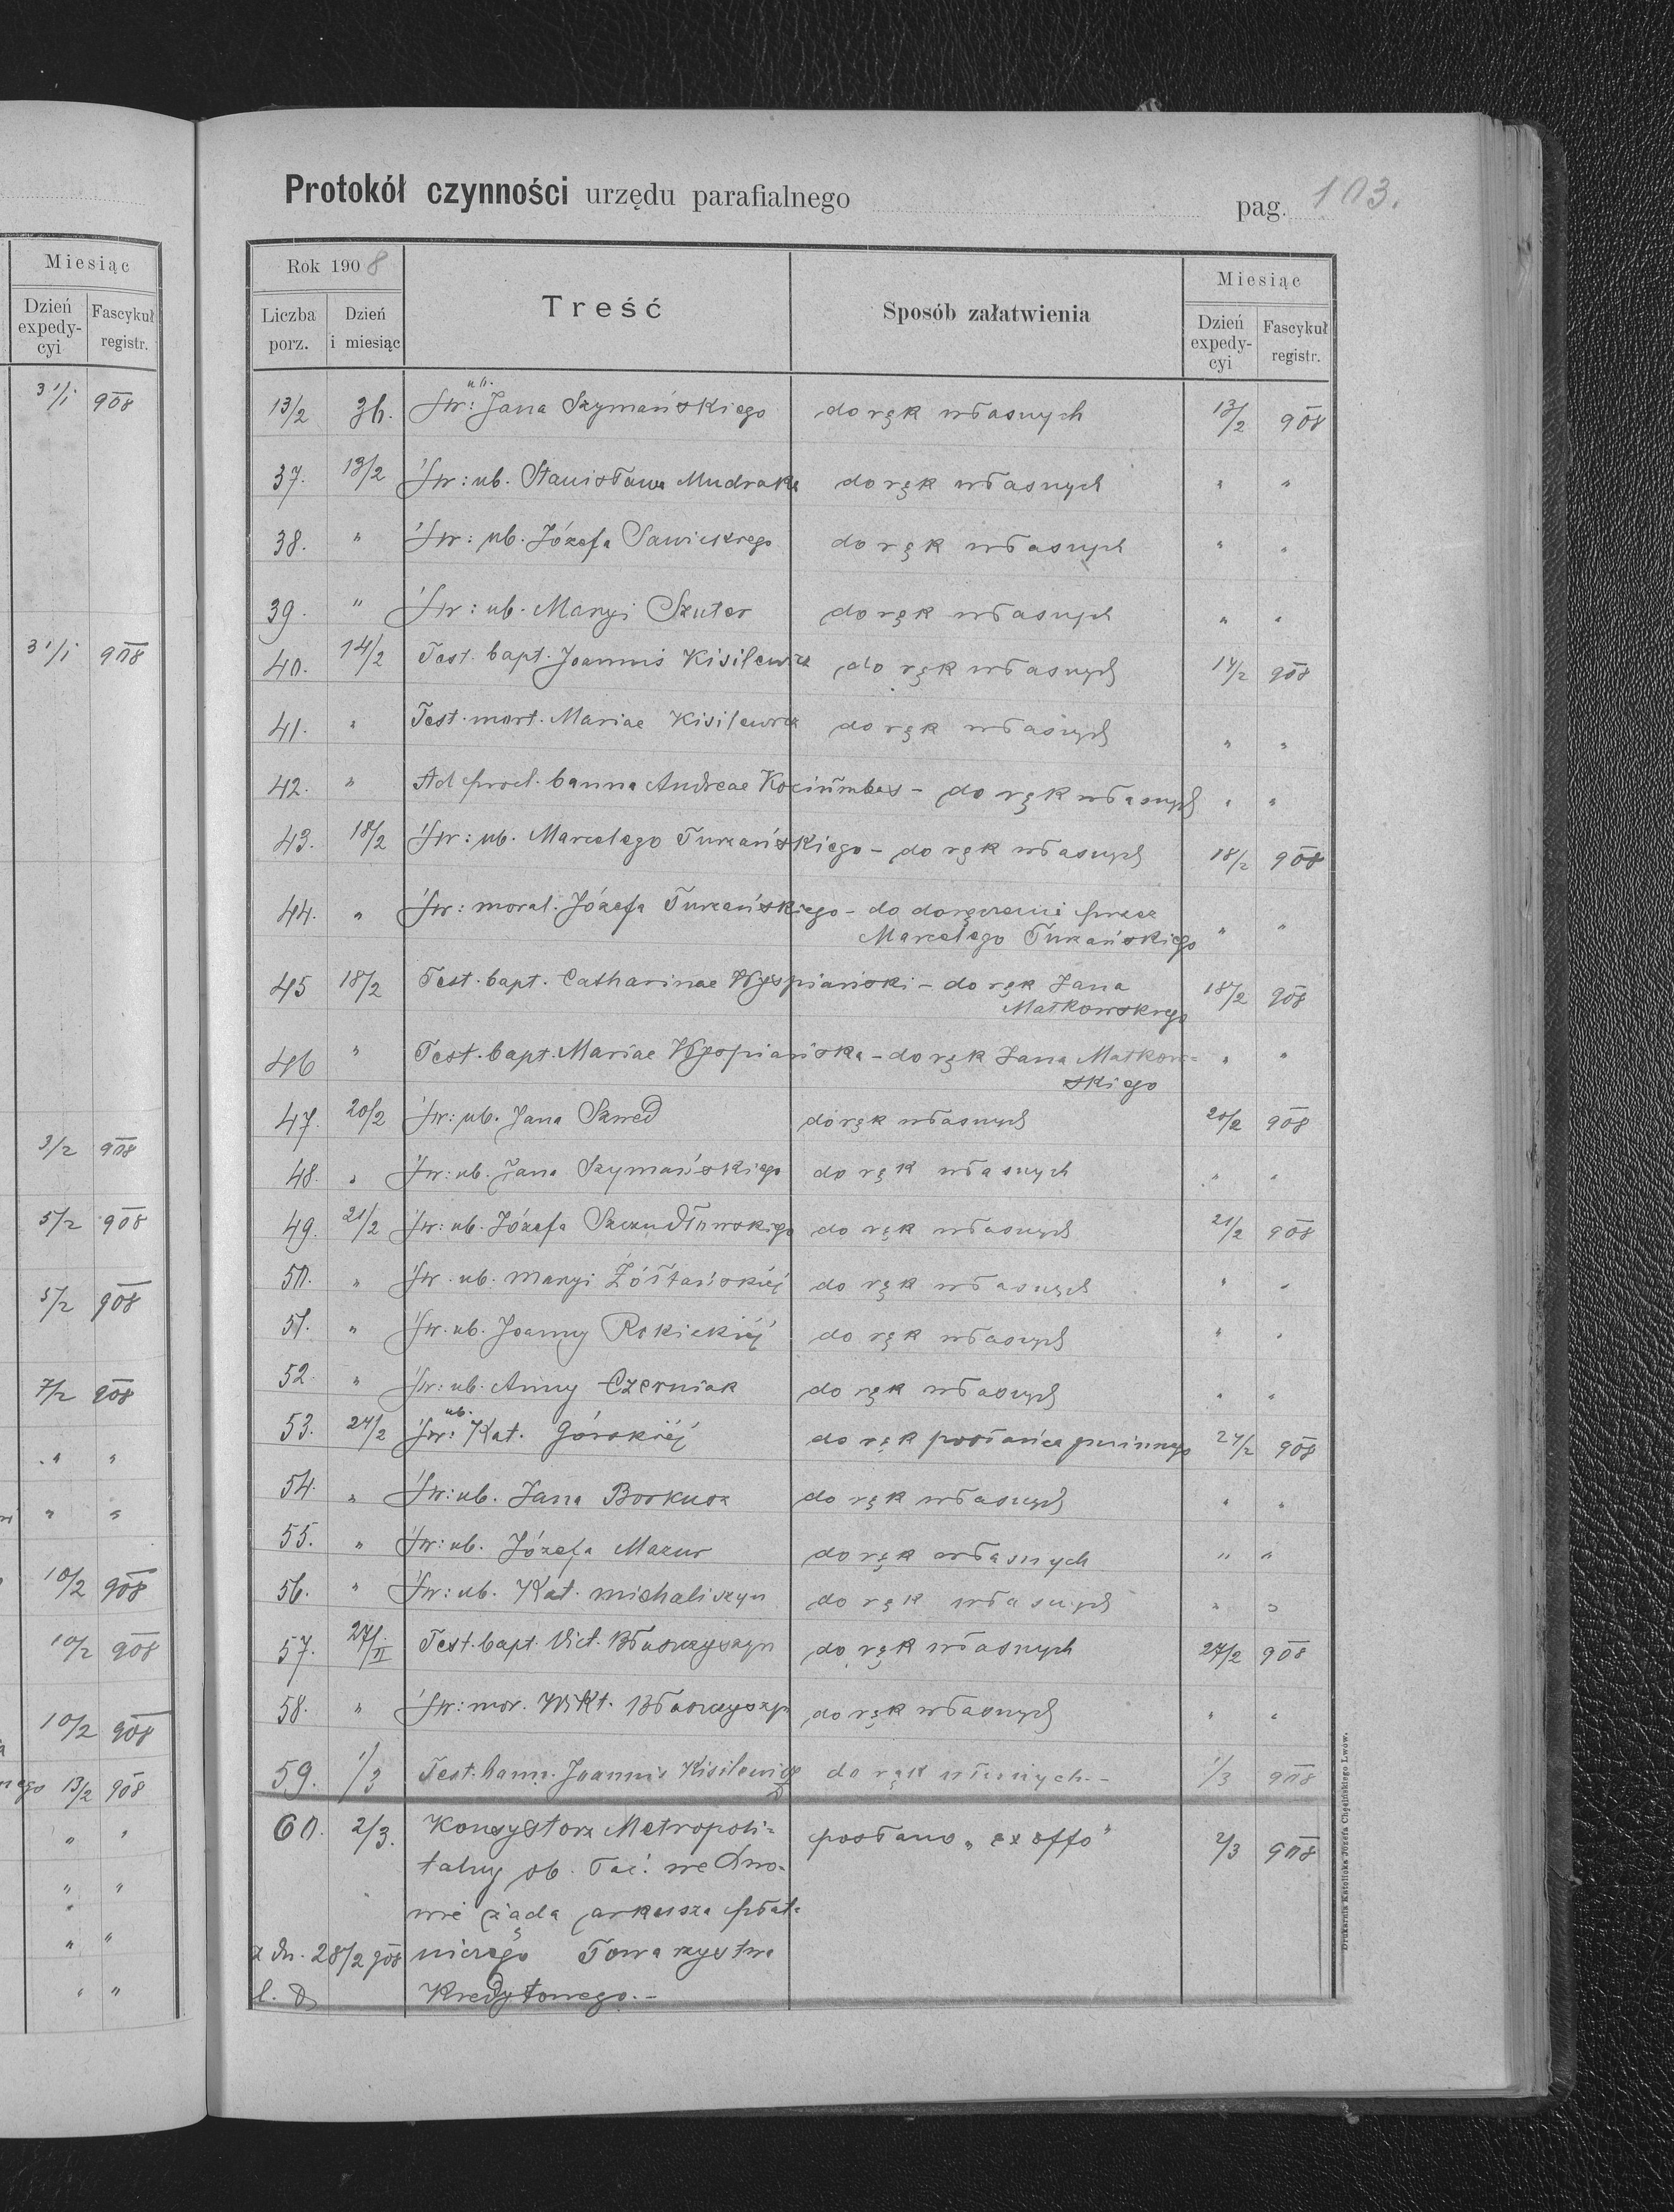 Miesiąc
Dzień expedy-cyi Fascykuł registr.
31/1 908
31/1 908
3/2 908
5/2 908
5/2 908
7/2 908
" "
" "
10/2 908
10/2 908
10/2 908
13/2 908
" "
" "
" "
" "
Protokół czynności urzędu parafialnego pag. 103.
Rok 1908 Miesiąc
Liczba porz. Dzień i miesiąc Treść Sposób załatwienia Dzień expedy-cyi Fascykuł registr.
13/2 36. Św: ub. Jana Szymańskiego do rąk własnych 13/2 908
37. 13/2 Św: ub. Stanisława Mudraka do rąk własnych " "
38. " Św: ub. Józefa Sawickiego do rąk własnych " "
39. " Św: ub. Maryi Szuter do rąk własnych " "
40. 14/2 Test. bapt. Joannis Kisilewicz do rąk własnych 14/2 908
41. " Test. mort. Mariae Kisilewicz do rąk własnych " "
42. " Ad procl. banna Andreae - do rąk własnych " "
43. 18/2 Św: ub. Marcelego Turzańskiego - do rąk własnych 18/2 908
44. " Św: moral. Józefa Turzańskiego - do doręczenia przez
Marcelego Turzańskiego " "
45 18/2 Test. bapt. Catharinae Wyspiański - do rąk Jana
Matkowskiego 18/2 908
46 " Test. bapt. Mariae Wyspiańska - do rąk Jana Matkow=
skiego " "
47. 20/2 Św: ub. Jana Szwed do rąk własnych 20/2 908
48. " Św: ub. Jana Szymańskiego do rąk własnych " "
49. 21/2 Św: ub. Józefa Szczudłowskiego do rąk własnych 21/2 908
50. " Św. ub. Maryi Żółtańskiéj do rąk własnych " "
51. " Św. ub. Joanny Rokickiéj do rąk własnych " "
52. " Św: ub. Anny Czerniak do rąk własnych " "
53. 24/2 Św: ub. Kat. Górskiéj do rąk posłańca 24/2 908
54. " Św: ub. Jana Borkusz do rąk własnych " "
55. " Św: ub. Józefa Mazur do rąk własnych " "
56. " Św: ub. Kat. Michaliszyn do rąk własnych " "
57. 27/II Test. bapt. Vict. Błaszczyszyn do rąk własnych 27/2 908
58. " Św: mor. Wikt. Błaszczyszyn do rąk własnych " "
59. 1/3 Test. bann. Joannis Kisilewicz do rąk własnych. - 1/3 908
60. 2/3. Konsystorz Metropoli= posłano „ex offo" 2/3 908
talny ob. łać. we Lwo-
wie żąda arkusza płat-
z dn. 28/2 908 niczego Towarzystwa
l. Kredytowego. -
Drukarnia Katolicka Józefa Chęcińskiego Lwów.